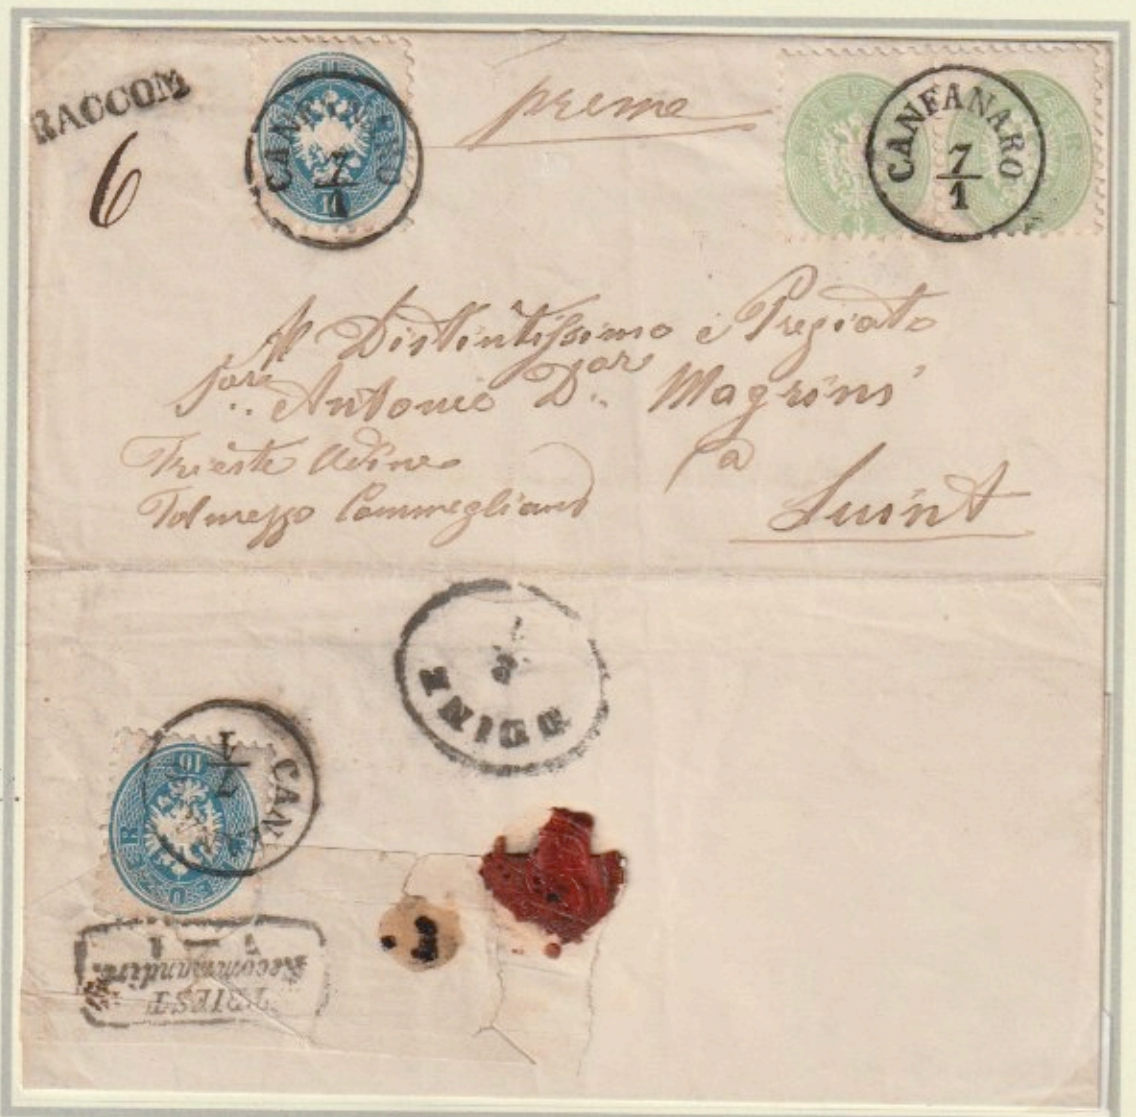 RACCOM
6
CANFANARO
7
1
preme
CANFANARO
7
1
Al Distintissimo e Pregiato
Sore.. Antonio Dor.. Magrini
Trieste Udine
a
Tolmezzo Commeglians
Luint
UDINE
CANF
7
1
KREUZER
TRIEST
Recommandirt.
1